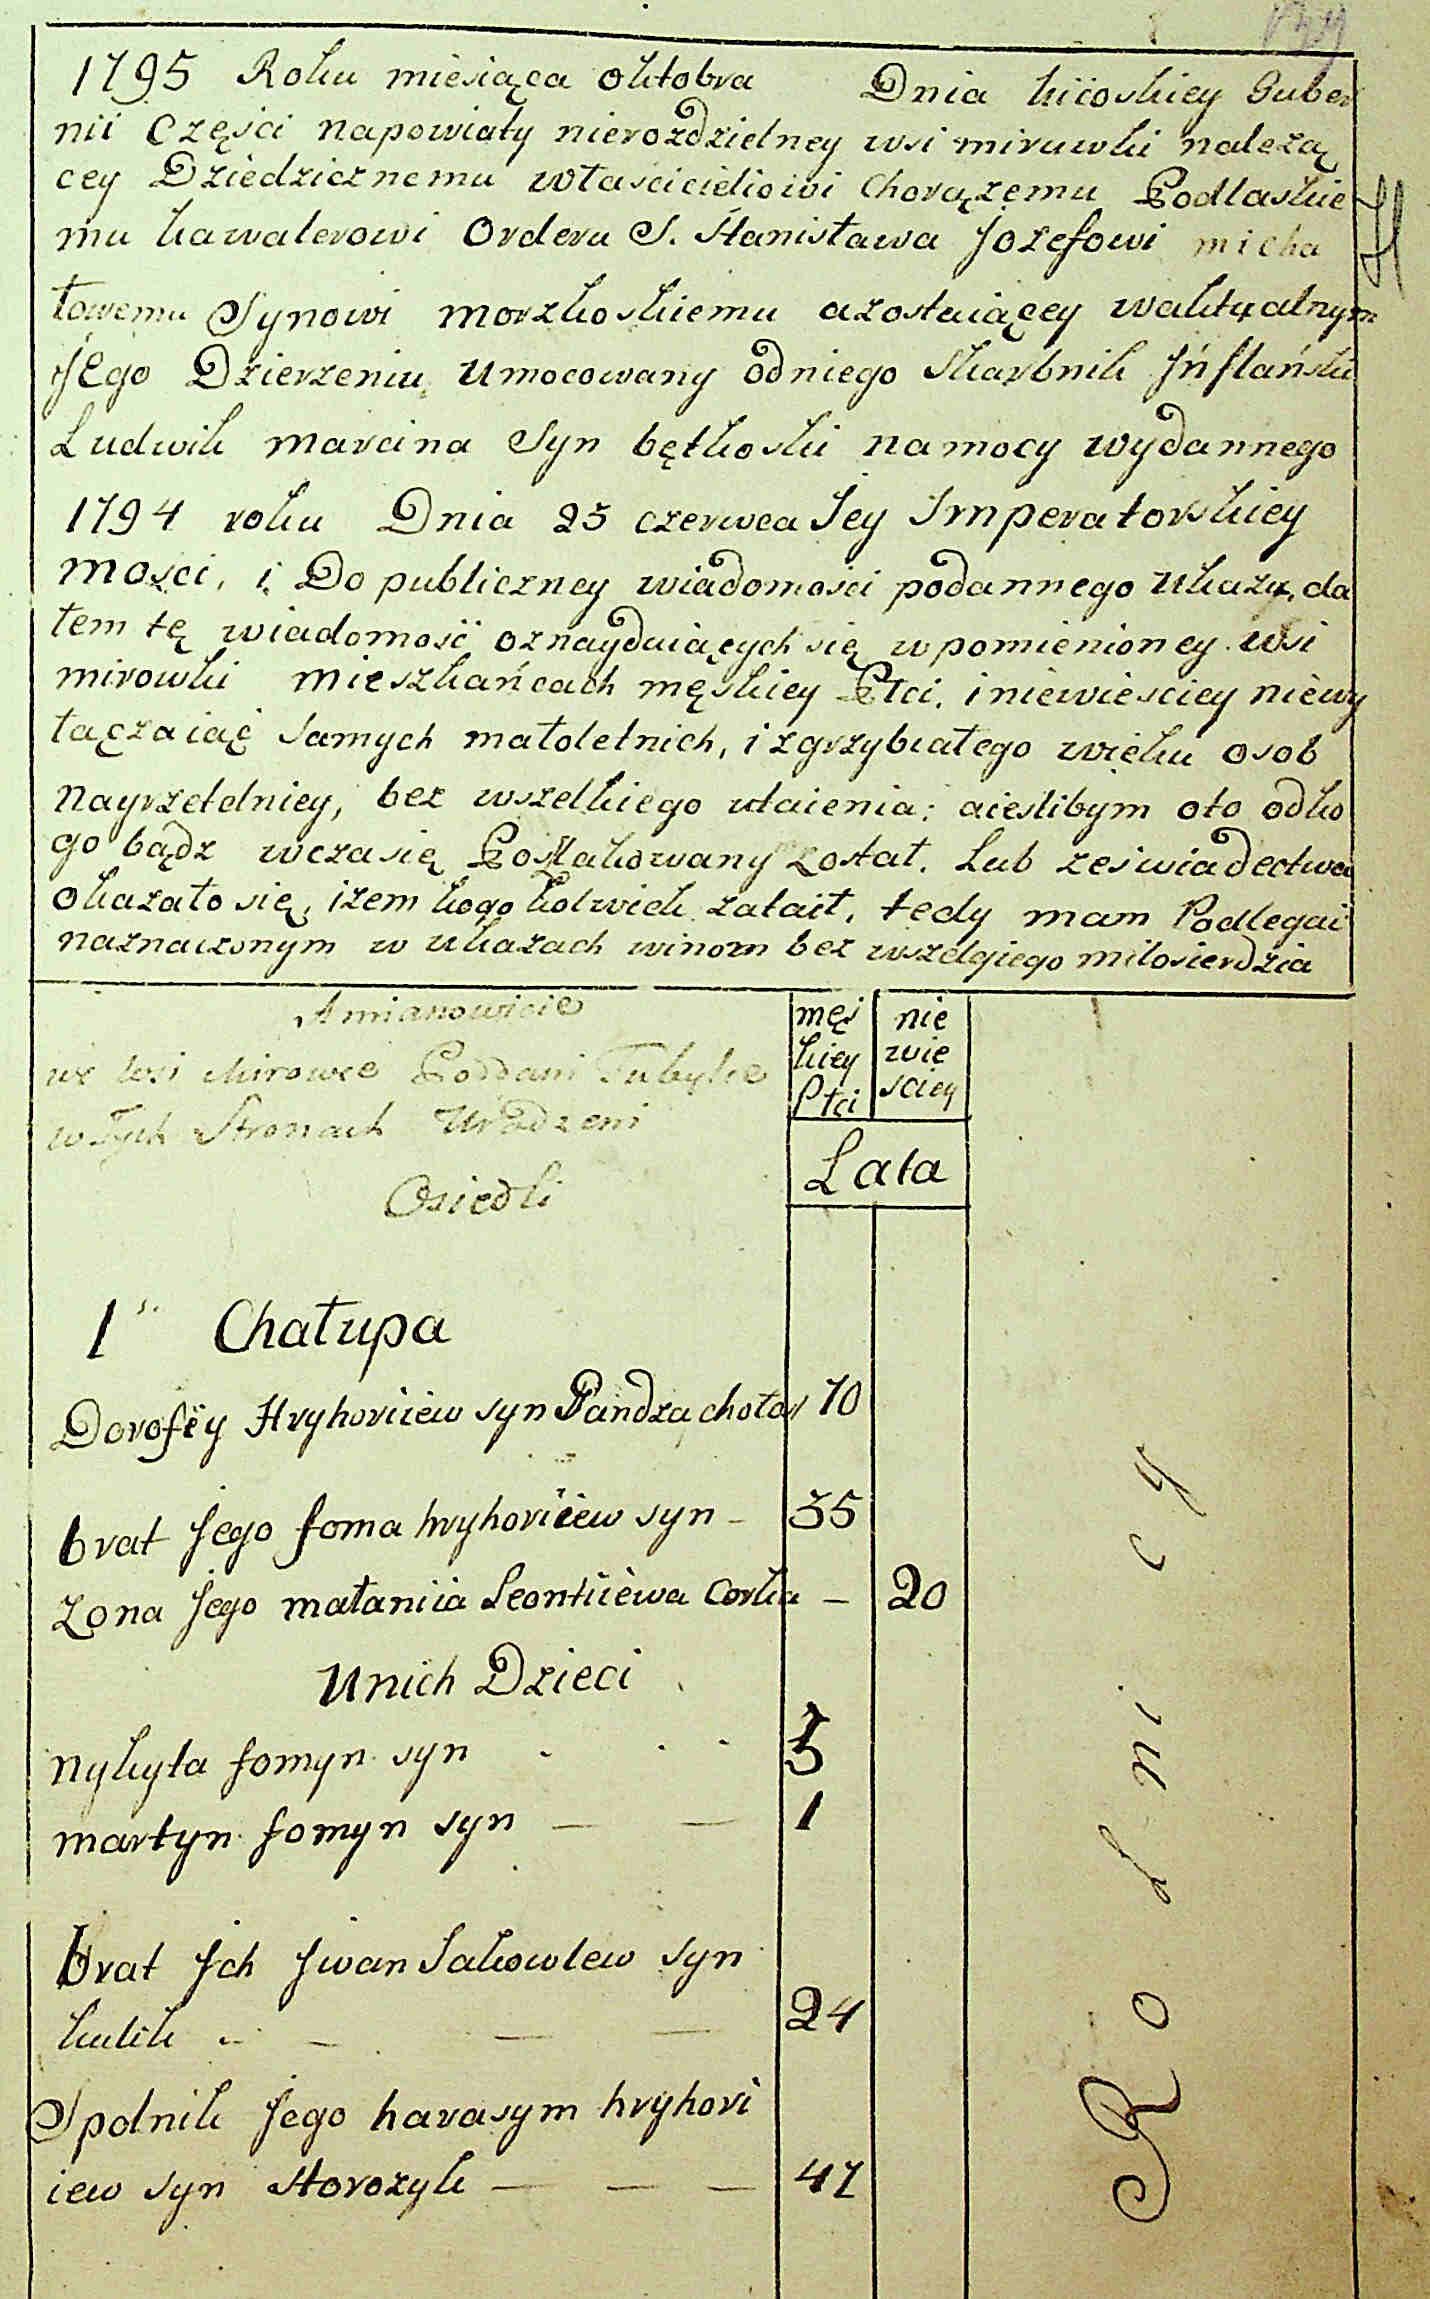 1795 Roku miesiąca oktobra Dnia kiioskiey Guber
nii Częsci napowiaty nierozdzielney wsi miruwki należą
cey Dziedzicznemu własciecieliowi Chorążemu Podlaskie
mu kawalerowi Orderu S. Stanisława Jozefowi micha
łowemu Synowi morzkoskiemu azostaiącey waktualnym
Jego Dzierzeniu, umocowany odniego Skarbnik Jnflański
Ludwik marcina Syn bętkoski namocy wydannego
1794 roku Dnia 23 czerwca Jey Imperatorskiey
mosci, i Do publiczney wiadomosci podannego ukazu, da
łem tę wiadomość oznayduiących się wpomienioney wsi
mirowki mieszkańcach męskiey Płci, i niewiesciey niewy
łączaiąc samych małoletnich, i zgrzybiałego wieku osob
nayrzetelniey, bez wszelkiego utaienia: aieslibym oto odko
go bądz wczasię Poszlakowany został, Lub zeswiadectwa
okazało się, izem kogokolwiek zataił, tedy mam Podlegać
naznaczonym w ukazach winom bez wszelgiego milosierdzia
Amianowicie
we wsi Mirowce Poddani Tubylce
w Tych Stronach Urodzeni
Osiedli
męs
kiey
Płci
nie
wie
sciey
Lata
1 Chałupa
Dorofiey Hryhoriiew syn Pandza chołos 70
brat Jego foma hryhoriiew syn – 35
zona Jego małaniia Leontiiewa Corka – 20
Unich Dzieci
nykyta fomyn syn 3
martyn fomyn syn — — 1
brat Jch Jwan Jakowlew syn
kulik – – — — 24
Spolnik Jego harasym hryhori
iew syn storozyk — — — 47
Rolnicy